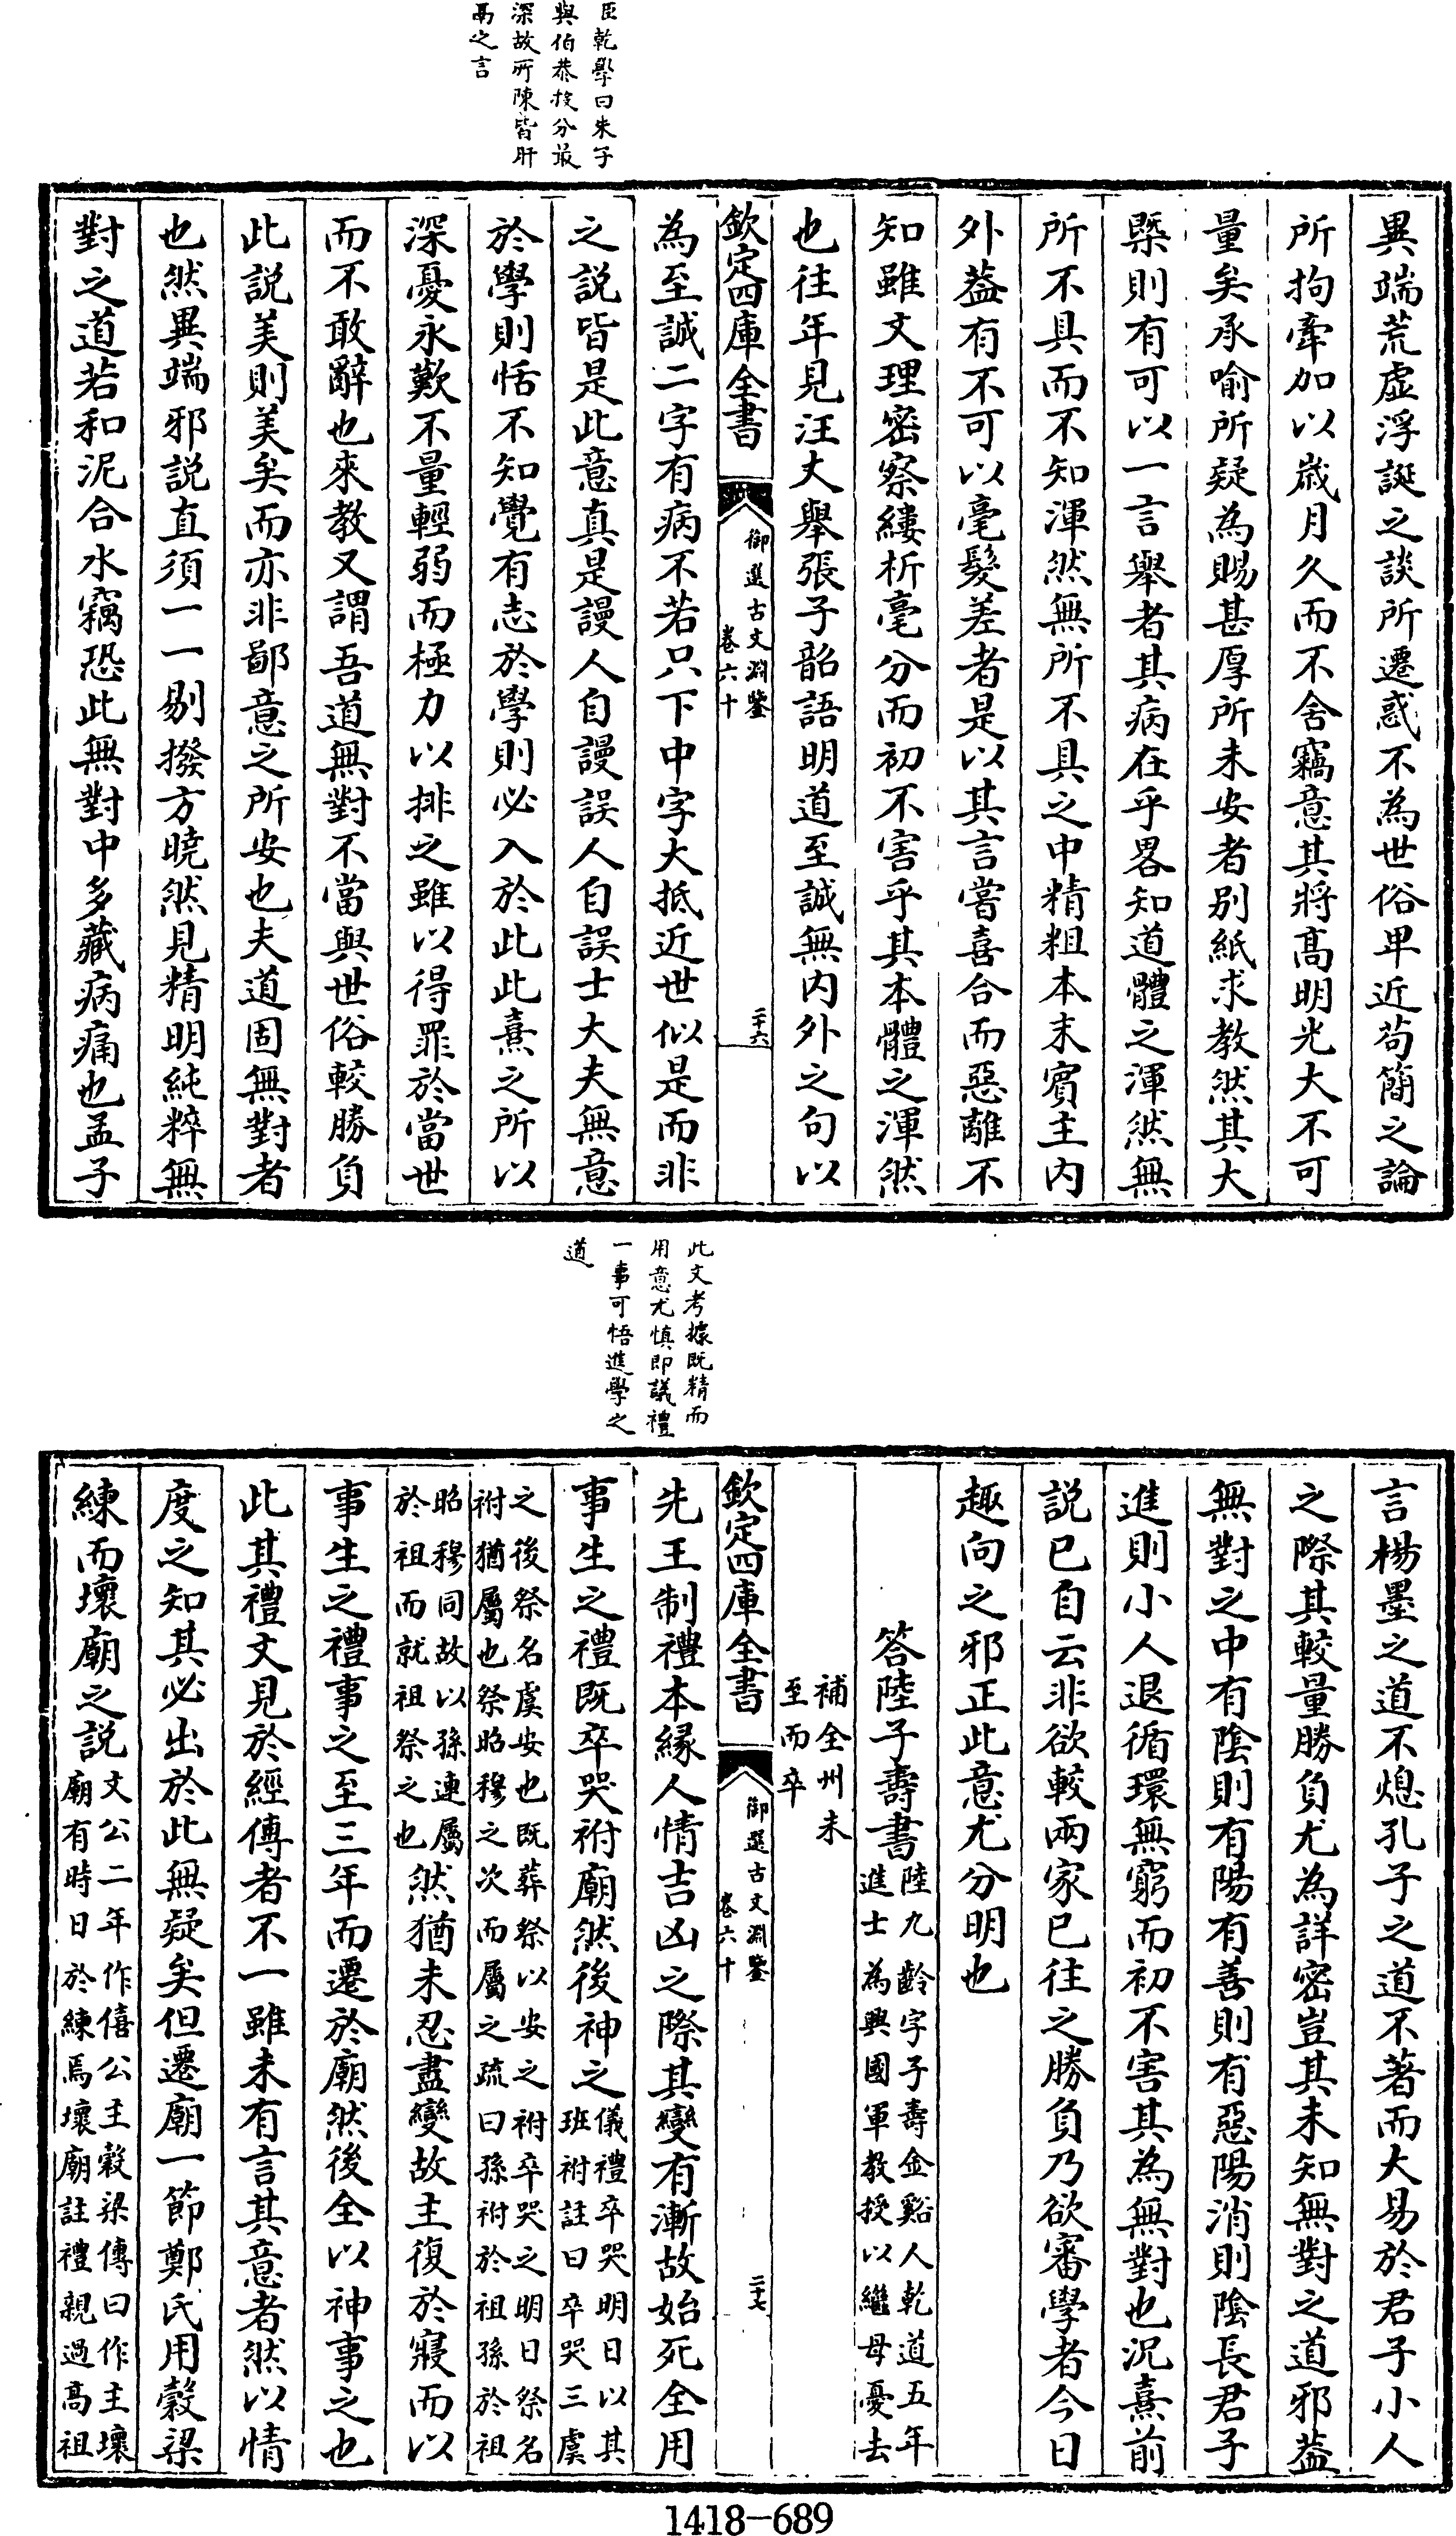 臣乾學曰朱子
與伯恭投分最
深故所陳皆肝
鬲之言
異端荒虚浮誕之談所遷惑不為世俗卑近苟簡之論
所拘牽加以歳月久而不舍竊意其將髙明光大不可
量矣承喻所疑為賜甚厚所未安者别紙求教然其大
槩則有可以一言舉者其病在乎畧知道體之渾然無
所不具而不知渾然無所不具之中精粗本末賔主内
外葢有不可以毫髮差者是以其言嘗喜合而惡離不
知雖文理密察縷析毫分而初不害乎其本體之渾然
也往年見汪丈舉張子韶語明道至誠無内外之句以
欽定四庫全書
御選古文淵鑒
卷六十
二十六
為至誠二字有病不若只下中字大抵近世似是而非
之説皆是此意真是謾人自謾誤人自誤士大夫無意
於學則恬不知覺有志於學則必入於此此熹之所以
深憂永歎不量輕弱而極力以排之雖以得罪於當世
而不敢辭也來教又謂吾道無對不當與世俗較勝負
此説美則美矣而亦非鄙意之所安也夫道固無對者
也然異端邪説直須一一剔撥方曉然見精明純粹無
對之道若和泥合水竊恐此無對中多藏病痛也孟子
此文考據既精而
用意尤慎即議禮
一事可悟進學之
道
言楊墨之道不熄孔子之道不著而大易於君子小人
之際其較量勝負尤為詳密豈其未知無對之道邪葢
無對之中有陰則有陽有善則有惡陽消則陰長君子
進則小人退循環無窮而初不害其為無對也況熹前
説已自云非欲較兩家已往之勝負乃欲審學者今日
趣向之邪正此意尤分明也
答陸子壽書
陸九齡字子壽金谿人乾道五年
進士為興國軍教授以繼母憂去
補全州未
至而卒
欽定四庫全書
御選古文淵鑒
卷六十
二十七
先王制禮本縁人情吉凶之際其變有漸故始死全用
事生之禮既卒哭祔廟然後神之
儀禮卒哭明日以其
班祔註曰卒哭三虞
之後祭名虞安也既葬祭以安之祔卒哭之明日祭名
祔猶屬也祭昭穆之次而屬之疏曰孫祔於祖孫於祖
昭穆同故以孫連屬
於祖而就祖祭之也
然猶未忍盡變故主復於寢而以
事生之禮事之至三年而遷於廟然後全以神事之也
此其禮文見於經傳者不一雖未有言其意者然以情
度之知其必出於此無疑矣但遷廟一節鄭氏用穀梁
練而壞廟之説
文公二年作僖公主穀梁傳曰作主壞
廟有時日於練焉壞廟註禮親過高祖
1418-689